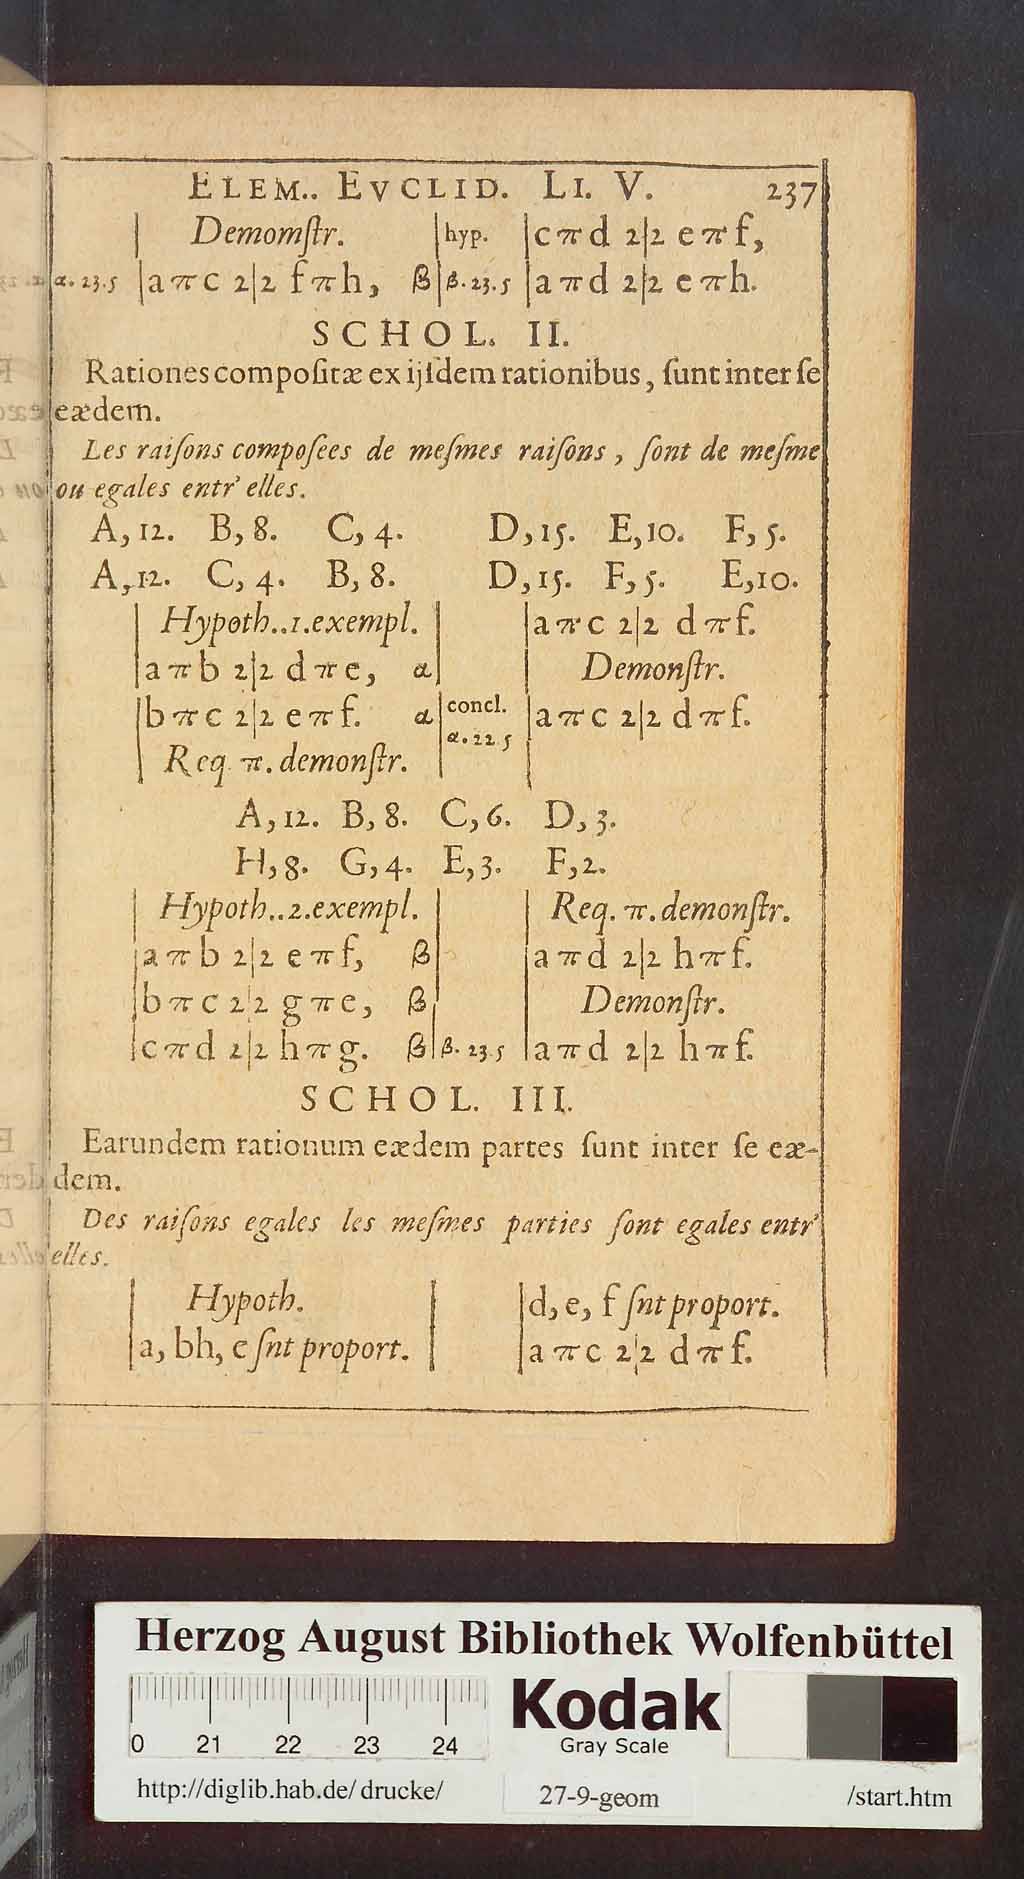 ELEM.. EVCLID. LI. V. 237
Demomſtr. |hyp. |cπd 2|2 eπf,
α. 23.5 |aπc 2|2 fπh, β|β. 23.5 |aπd 2|2 eπh.
SCHOL. II.
Rationes compoſitæ ex ijſdem rationibus, ſunt inter ſe
eædem.
Les raiſons compoſees de meſmes raiſons, ſont de meſme
ou egales entr' elles.
A, 12. B, 8. C, 4. D, 15. E, 10. F, 5.
A, 12. C, 4. B, 8. D, 15. F, 5. E, 10.
Hypoth..1.exempl. |aπc 2|2 dπf.
|aπb 2|2 dπe, α| Demonſtr.
|bπc 2|2 eπf. α|concl. α. 22.5 |aπc 2|2 dπf.
Req. π. demonſtr.
A, 12. B, 8. C, 6. D, 3.
H, 8. G, 4. E, 3. F, 2.
Hypoth..2.exempl. | Req. π. demonſtr.
|aπb 2|2 eπf, β |aπd 2|2 hπf.
|bπc 2|2 gπe, β| Demonſtr.
|cπd 2|2 hπg. β|β. 23.5 |aπd 2|2 hπf.
SCHOL. III.
Earundem rationum eædem partes ſunt inter ſe eæ-
dem.
Des raiſons egales les meſmes parties ſont egales entr'
elles.
Hypoth. |d, e, f ſnt proport.
|a, bh, c ſnt proport. |aπc 2|2 dπf.
Herzog August Bibliothek Wolfenbüttel
0 21 22 23 24
Kodak
Gray Scale
http://diglib.hab.de/drucke/ 27-9-geom /start.htm